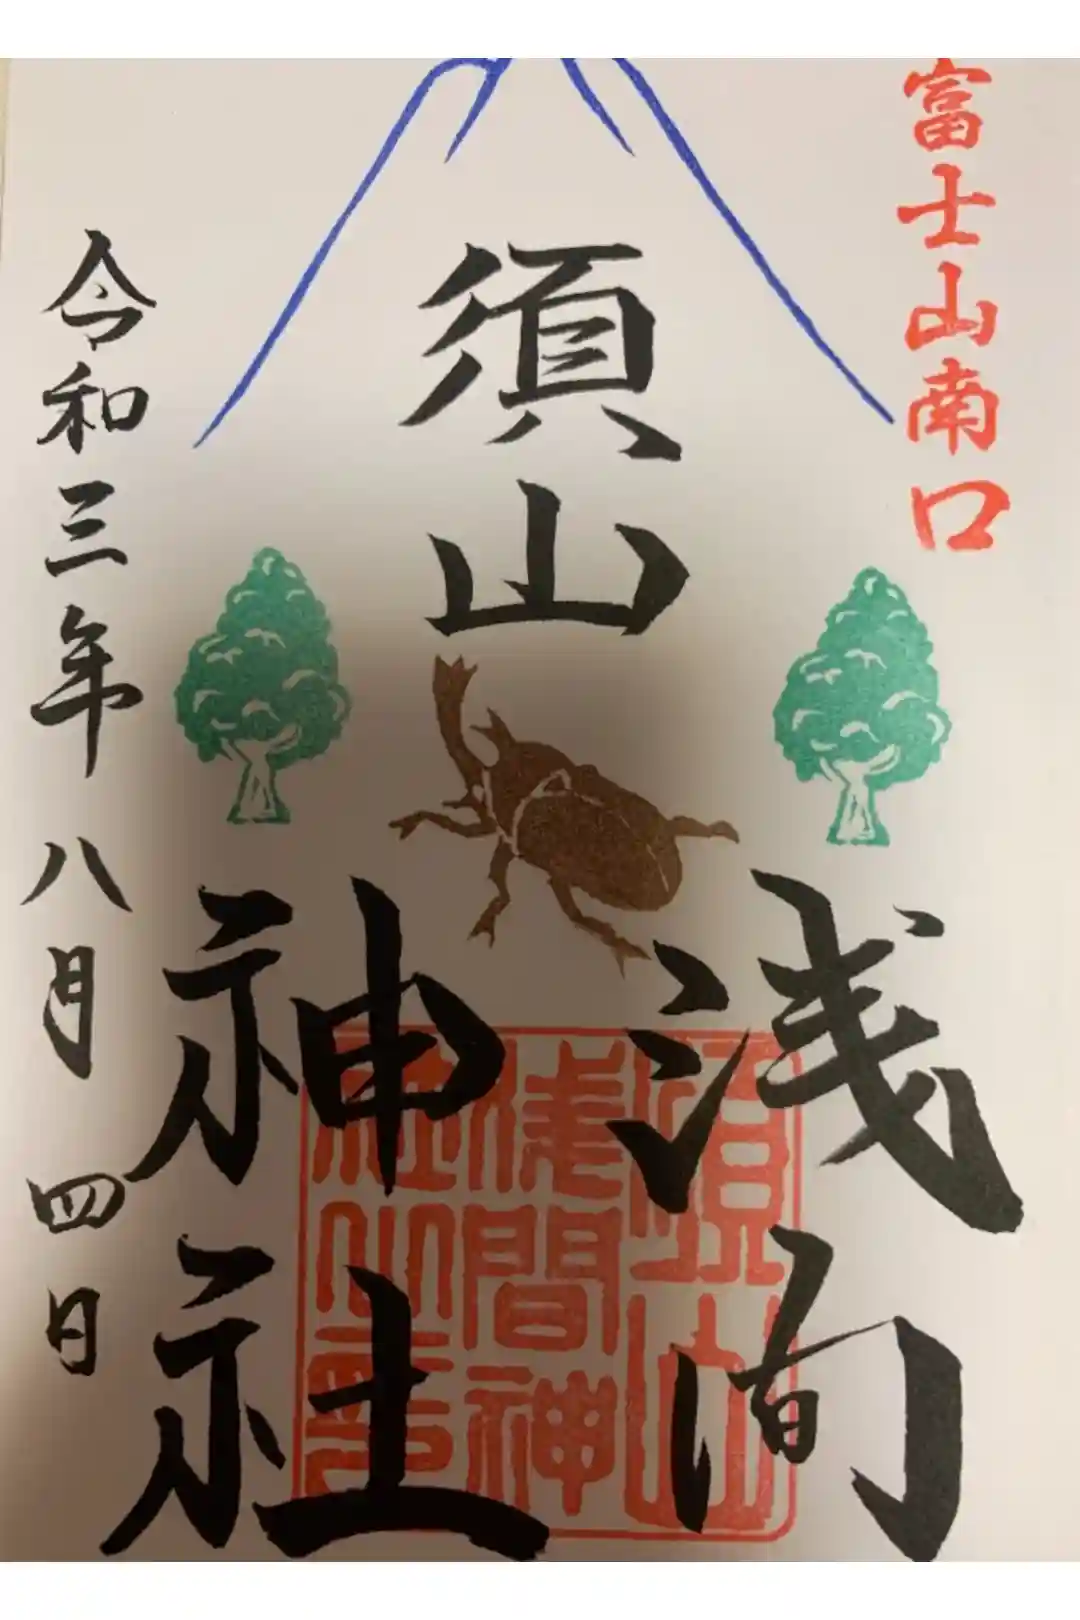 富士山南口
須山
浅间
神社
令和三年八月四日
須山
浅間神
社之印